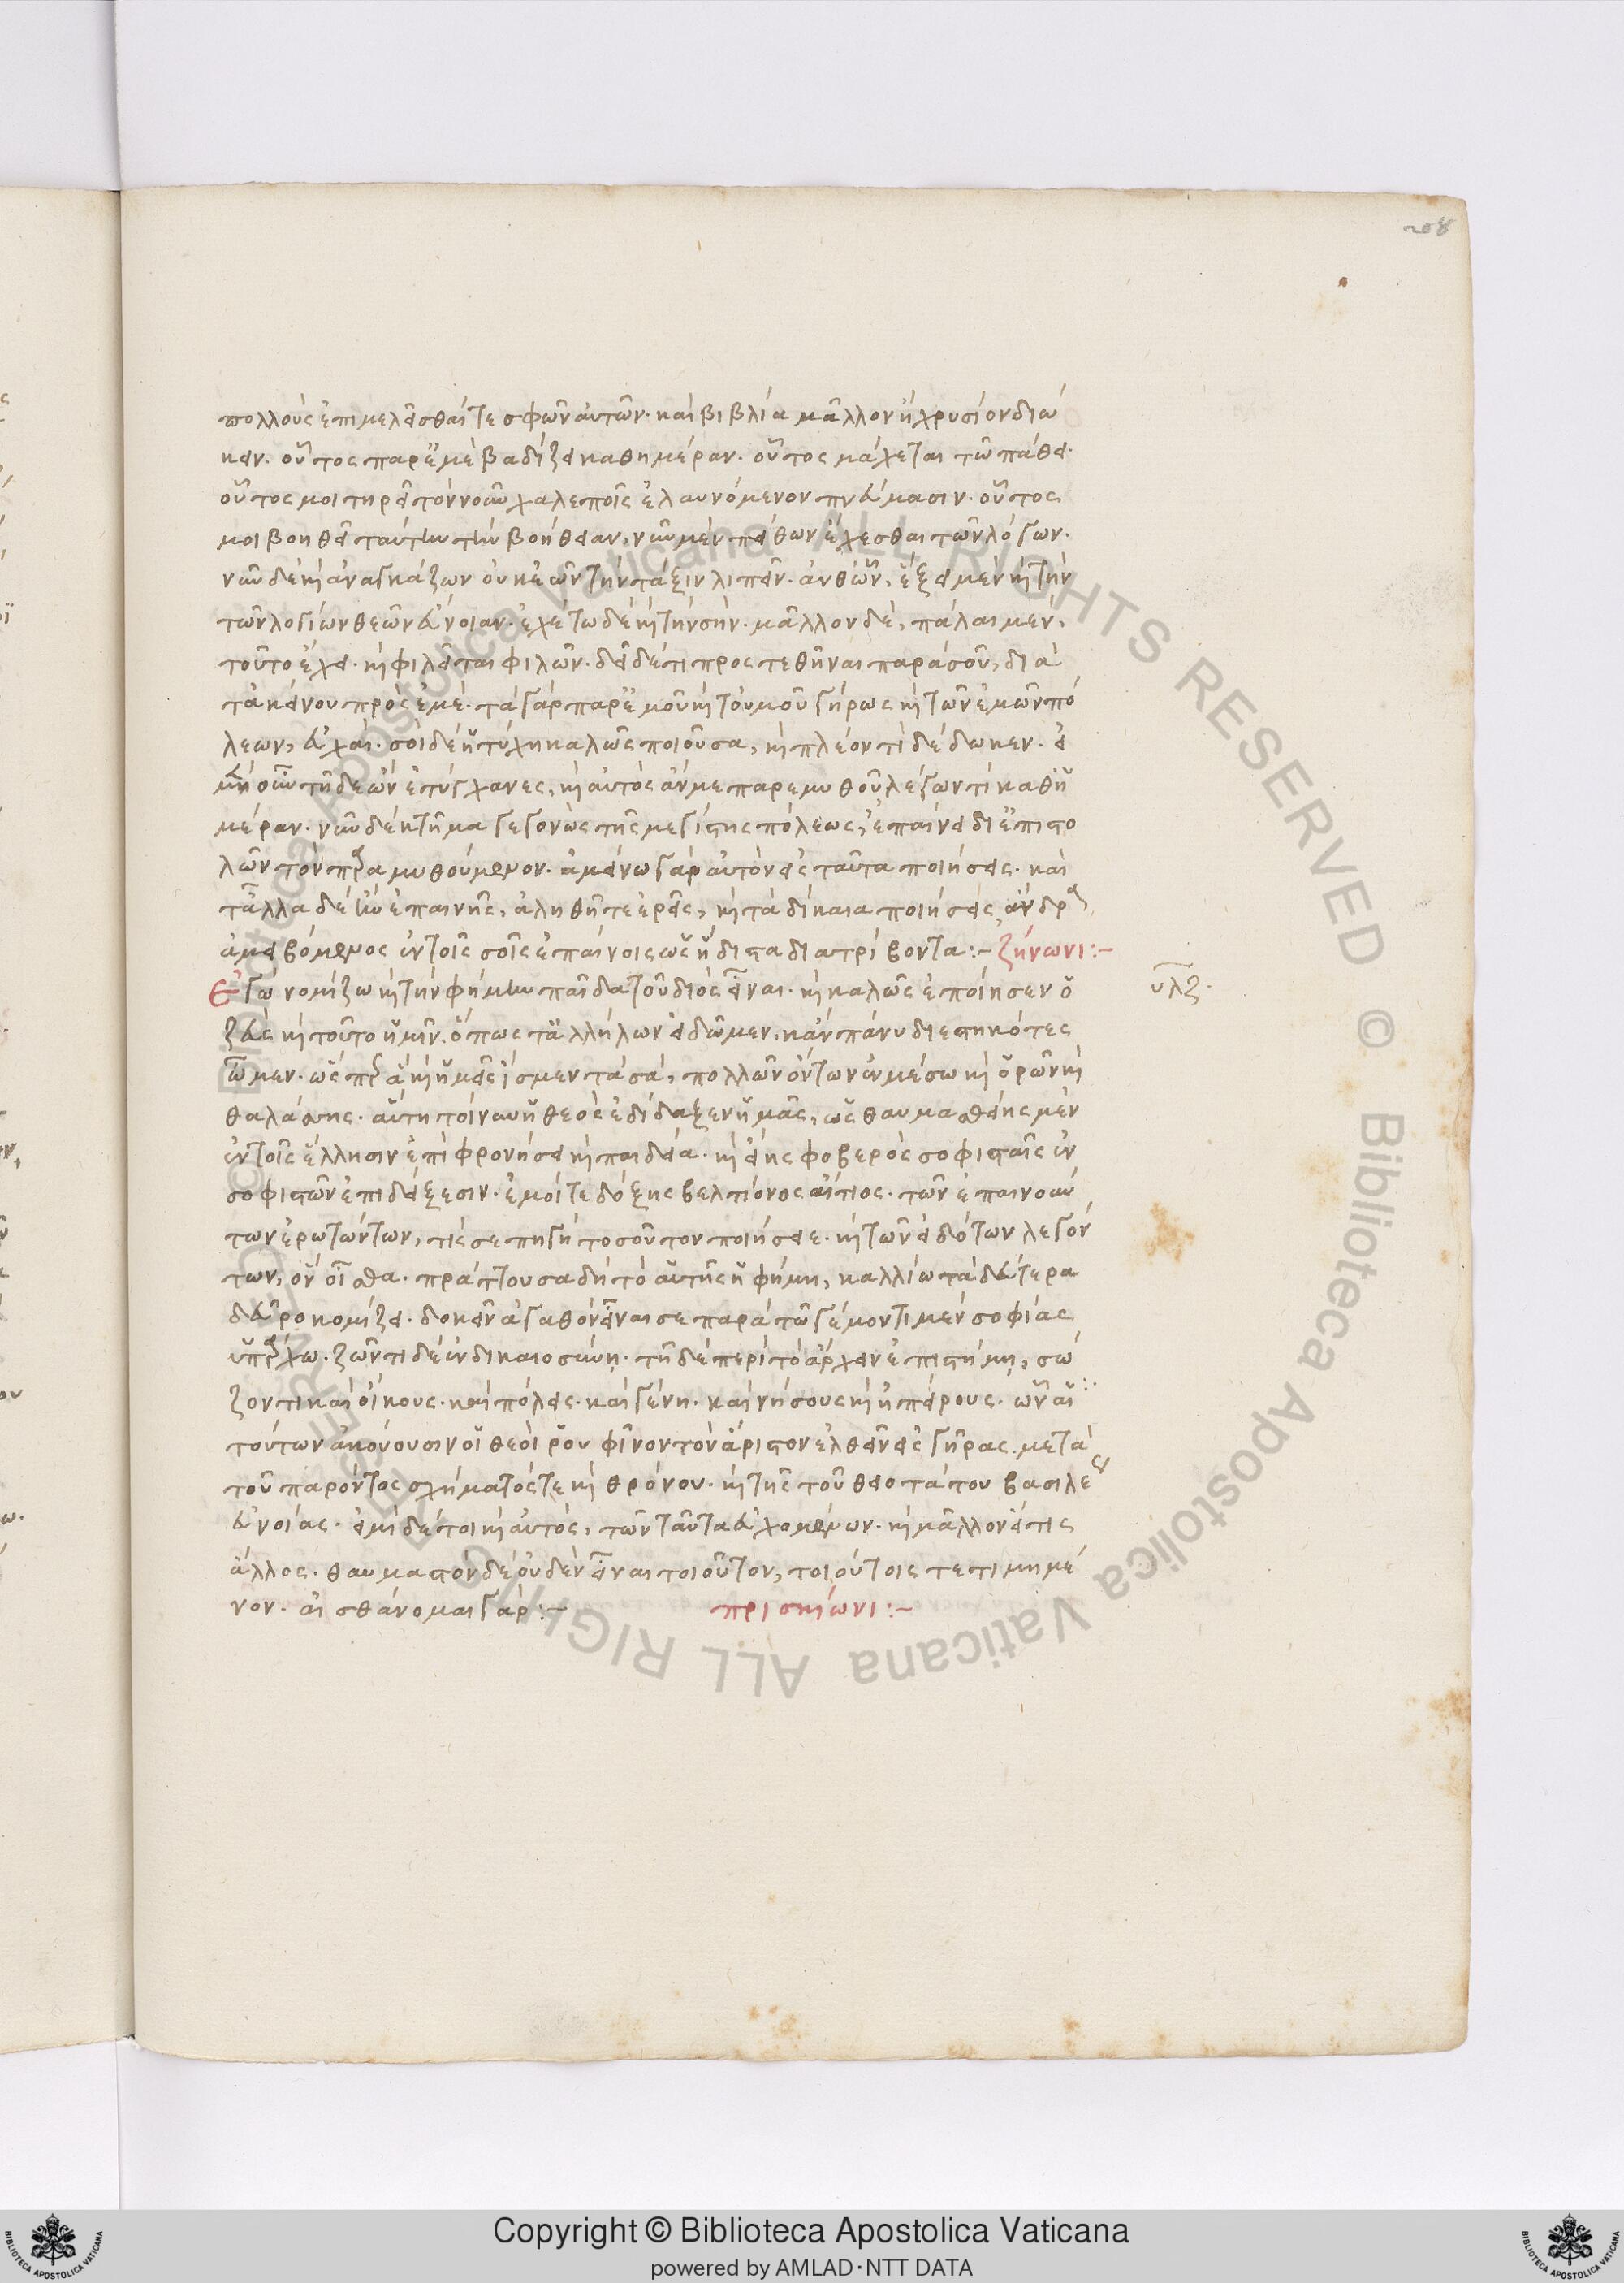 208
πολλοὺς ἐπιμελεῖσθαί τε σφῶν αὐτῶν· καὶ βιβλία μᾶλλον ἢ χρυσίον διώ
κειν. οὗτος παρ' ἐμὲ βαδίζει καθημέραν. οὗτος μάχεται τῶ πάθει·
οὗτος μοι τηρεῖ τὸν νοῦν χαλεποῖς ἐλαυνόμενον πνεύμασιν. οὗτος
μοι βοηθεῖ ταύτην τὴν βοήθειαν, νῦν μὲν πείθων ἔχεσθαι τῶν λόγων.
νῦν δὲ κὶ ἀναγκάζων οὐκ ἐῶν τὴν τάξιν λιπεῖν. ἀνθ' ὧν, ἕξει μὲν κὶ τὴν
τῶν λογίων θεῶν εὔνοιαν. ἐχέτω δὲ κὶ τὴν σήν. μᾶλλον δὲ, πάλαι μὲν,
τοῦτο ἔχει. κὶ φιλεῖται φιλῶν. δεῖ δέ τι προστεθῆναι παρὰ σοῦ, διὰ
τἀκείνου πρὸς ἐμέ. τὰ γὰρ παρ' ἐμοῦ κὶ τοὐμοῦ γήρως κὶ τῶν ἐμῶν πό
λεων, εὐχαί. σοὶ δὲ ἡ τύχη καλῶς ποιοῦσα, κὶ πλέον τί δέδωκεν. εἰ
μὲν οὖν τῇδε ὢν ἐτύγχανες, κὶ αὐτὸς ἄν με παρεμυθοῦ λέγων τί καθ' ἡ
μέραν. νῦν δὲ κτῆμα γεγονὼς τῆς μεγίστης πόλεως, ἐπαίνει δι' ἐπιστο
λῶν τὸν παραμυθούμενον. ἀμείνω γὰρ αὐτὸν εἰς ταῦτα ποιήσεις. καὶ
τἄλλα δὲ εὖ ἐπαινῇς, ἀληθῆ τε ἐρεῖς, κὶ τὰ δίκαια ποιήσεις, ἄνδρα
ἀμειβόμενος ἐν τοῖς σοῖς ἐπαίνοις ὡς ἥδιστα διατρίβοντα:- ζήνωνι:-
Ἐγὼ νομίζω κὶ τὴν φήμην παῖδα τοῦ διὸς εἶναι. κὶ καλῶς ἐποίησεν ὁ
υλζ.
ζεὺς κὶ τοῦτο ἡμῖν. ὅπως τἀλλήλων εἰδῶμεν, κἂν πάνυ διεστηκότες
ὦμεν. ὥσπερ ἃ κὶ ἡμεῖς ἴσμεν τὰ σά, πολλῶν ὄντων ἐν μέσω κὶ ὁρῶν κὶ
θαλάττης. αὕτη τοίνυν ἡ θεὸς ἐδίδαξεν ἡμᾶς, ὡς θαυμασθείης μὲν
ἐν τοῖς ἕλλησιν ἐπὶ φρονήσει κὶ παιδεία. κὶ εἴης φοβερὸς σοφισταῖς ἐν
σοφιστῶν ἐπιδείξεσιν. ἐμοί τε δόξης βελτίονος αἴτιος. τῶν ἐπαινούν
των ἐρωτώντων, τίς σε πηγὴ τοσοῦτον ποιήσειε. κὶ τῶν εἰδότων λεγόν
των, ὃν οἶσθα. πράττουσα δὴ τὸ αὑτῆς ἡ φήμη, καλλίω τὰ δεύτερα
δεῦρο κομίζει. δοκεῖν ἀγαθὸν εἶναι σε παρὰ τῶ γέμοντι μὲν σοφίας
ὑπάρχω. ζῶντι δὲ ἐν δικαιοσύνῃ. τῇ δὲ περὶ τὸ ἄρχειν ἐπιστήμῃ, σώ
ζοντι καὶ οἴκους. καὶ πόλεις. καὶ γένη. καὶ νήσους κὶ ἠπείρους. ὧν αἱ
τούτων ἀκούουσιν οἱ θεοὶ ῥουφῖνον τὸν ἄριστον ἐλθεῖν εἰς γῆρας. μετὰ
τοῦ παρόντος σχήματός τε κὶ θρόνου. κὶ τῆς τοῦ θειοτάτου βασιλέως
εὐνοίας. εἰμὶ δέ τοι κὶ αὐτὸς, τῶν ταῦτα εὐχομένων. κὶ μᾶλλον εἴ τις
ἄλλος. θαυμαστὸν δὲ οὐδὲν εἶναι τοιοῦτον, τοιούτοις τετιμημέ
νον. αἰσθάνομαι γάρ:- πρισκίωνι:-
Copyright © Biblioteca Apostolica Vaticana
powered by AMLAD·NTT DATA